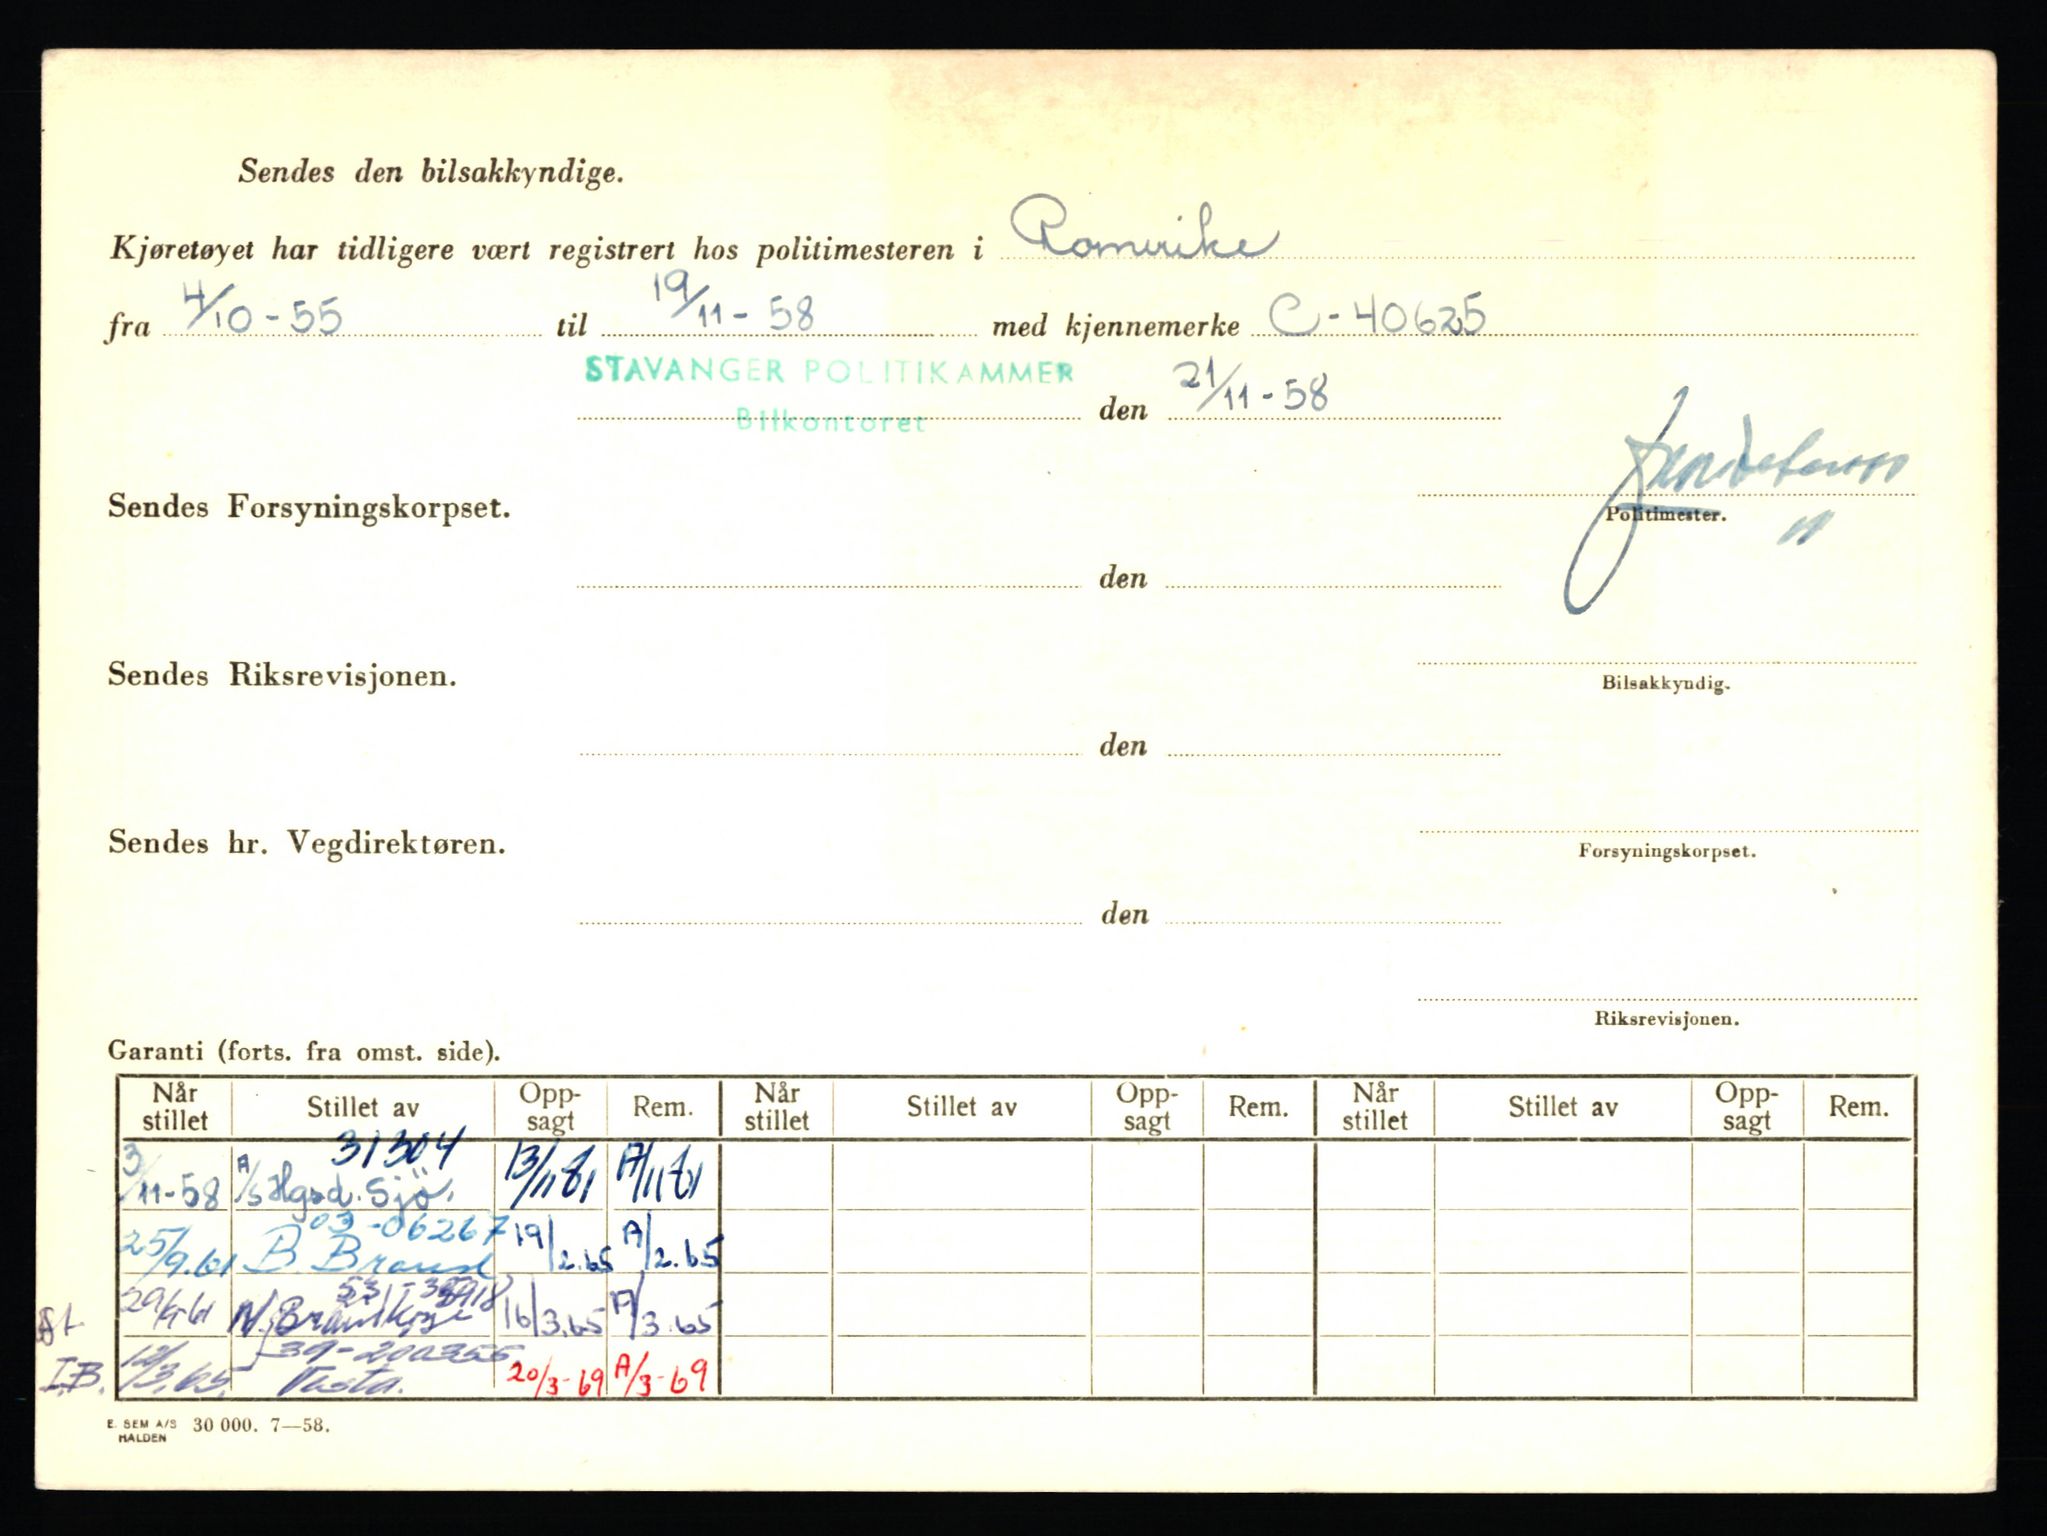 Sendes den bilsakkyndige.
Kjøretøyet har tidligere vært registrert hos politimesteren i Romerike
fra 4/10-55 til 19/11-58 med kjennemerke C-40625
STAVANGER POLITIKAMMER
Bilkontoret den 21/11-58
Sendes Forsyningskorpset.
Politimester.
den
Sendes Riksrevisjonen.
Bilsakkyndig.
den
Sendes hr. Vegdirektøren.
Forsyningskorpset.
den
Riksrevisjonen.
Garanti (forts. fra omst. side).
Når stillet Stillet av Opp-sagt Rem. Når stillet Stillet av Opp-sagt Rem. Når stillet Stillet av Opp-sagt Rem.
31304
3/11-58 A/S Hgsd. Sjö. 13/11 61 A/11 61
03-06267
25/9.61 B. Brand 19/2.65 A/2.65
16/3.65 A/3.65
39-200355
I.B. 12/3.65. Vesta. 20/3-69 A/3-69
E. SEM A/S HALDEN 30 000. 7—58.